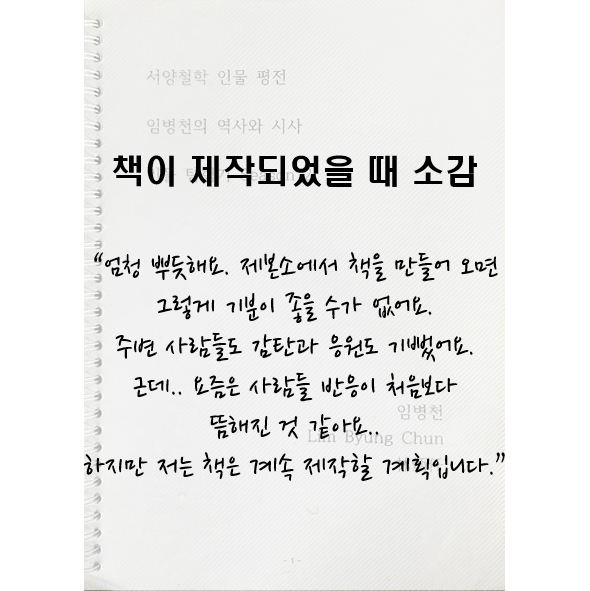 서양철학 인물 평전
임병천의 역사와 시사
책이 제작되었을 때 소감
“엄청 뿌듯해요. 제본소에서 책을 만들어 오면
그렇게 기분이 좋을 수가 없어요.
주변 사람들도 감탄과 응원도 기뻤어요.
근데.. 요즘은 사람들 반응이 처음보다
임병천
뜸해진 것 같아요..
Lim Byung Chun
하지만 저는 책은 계속 제작할 계획입니다.”
- 1 -